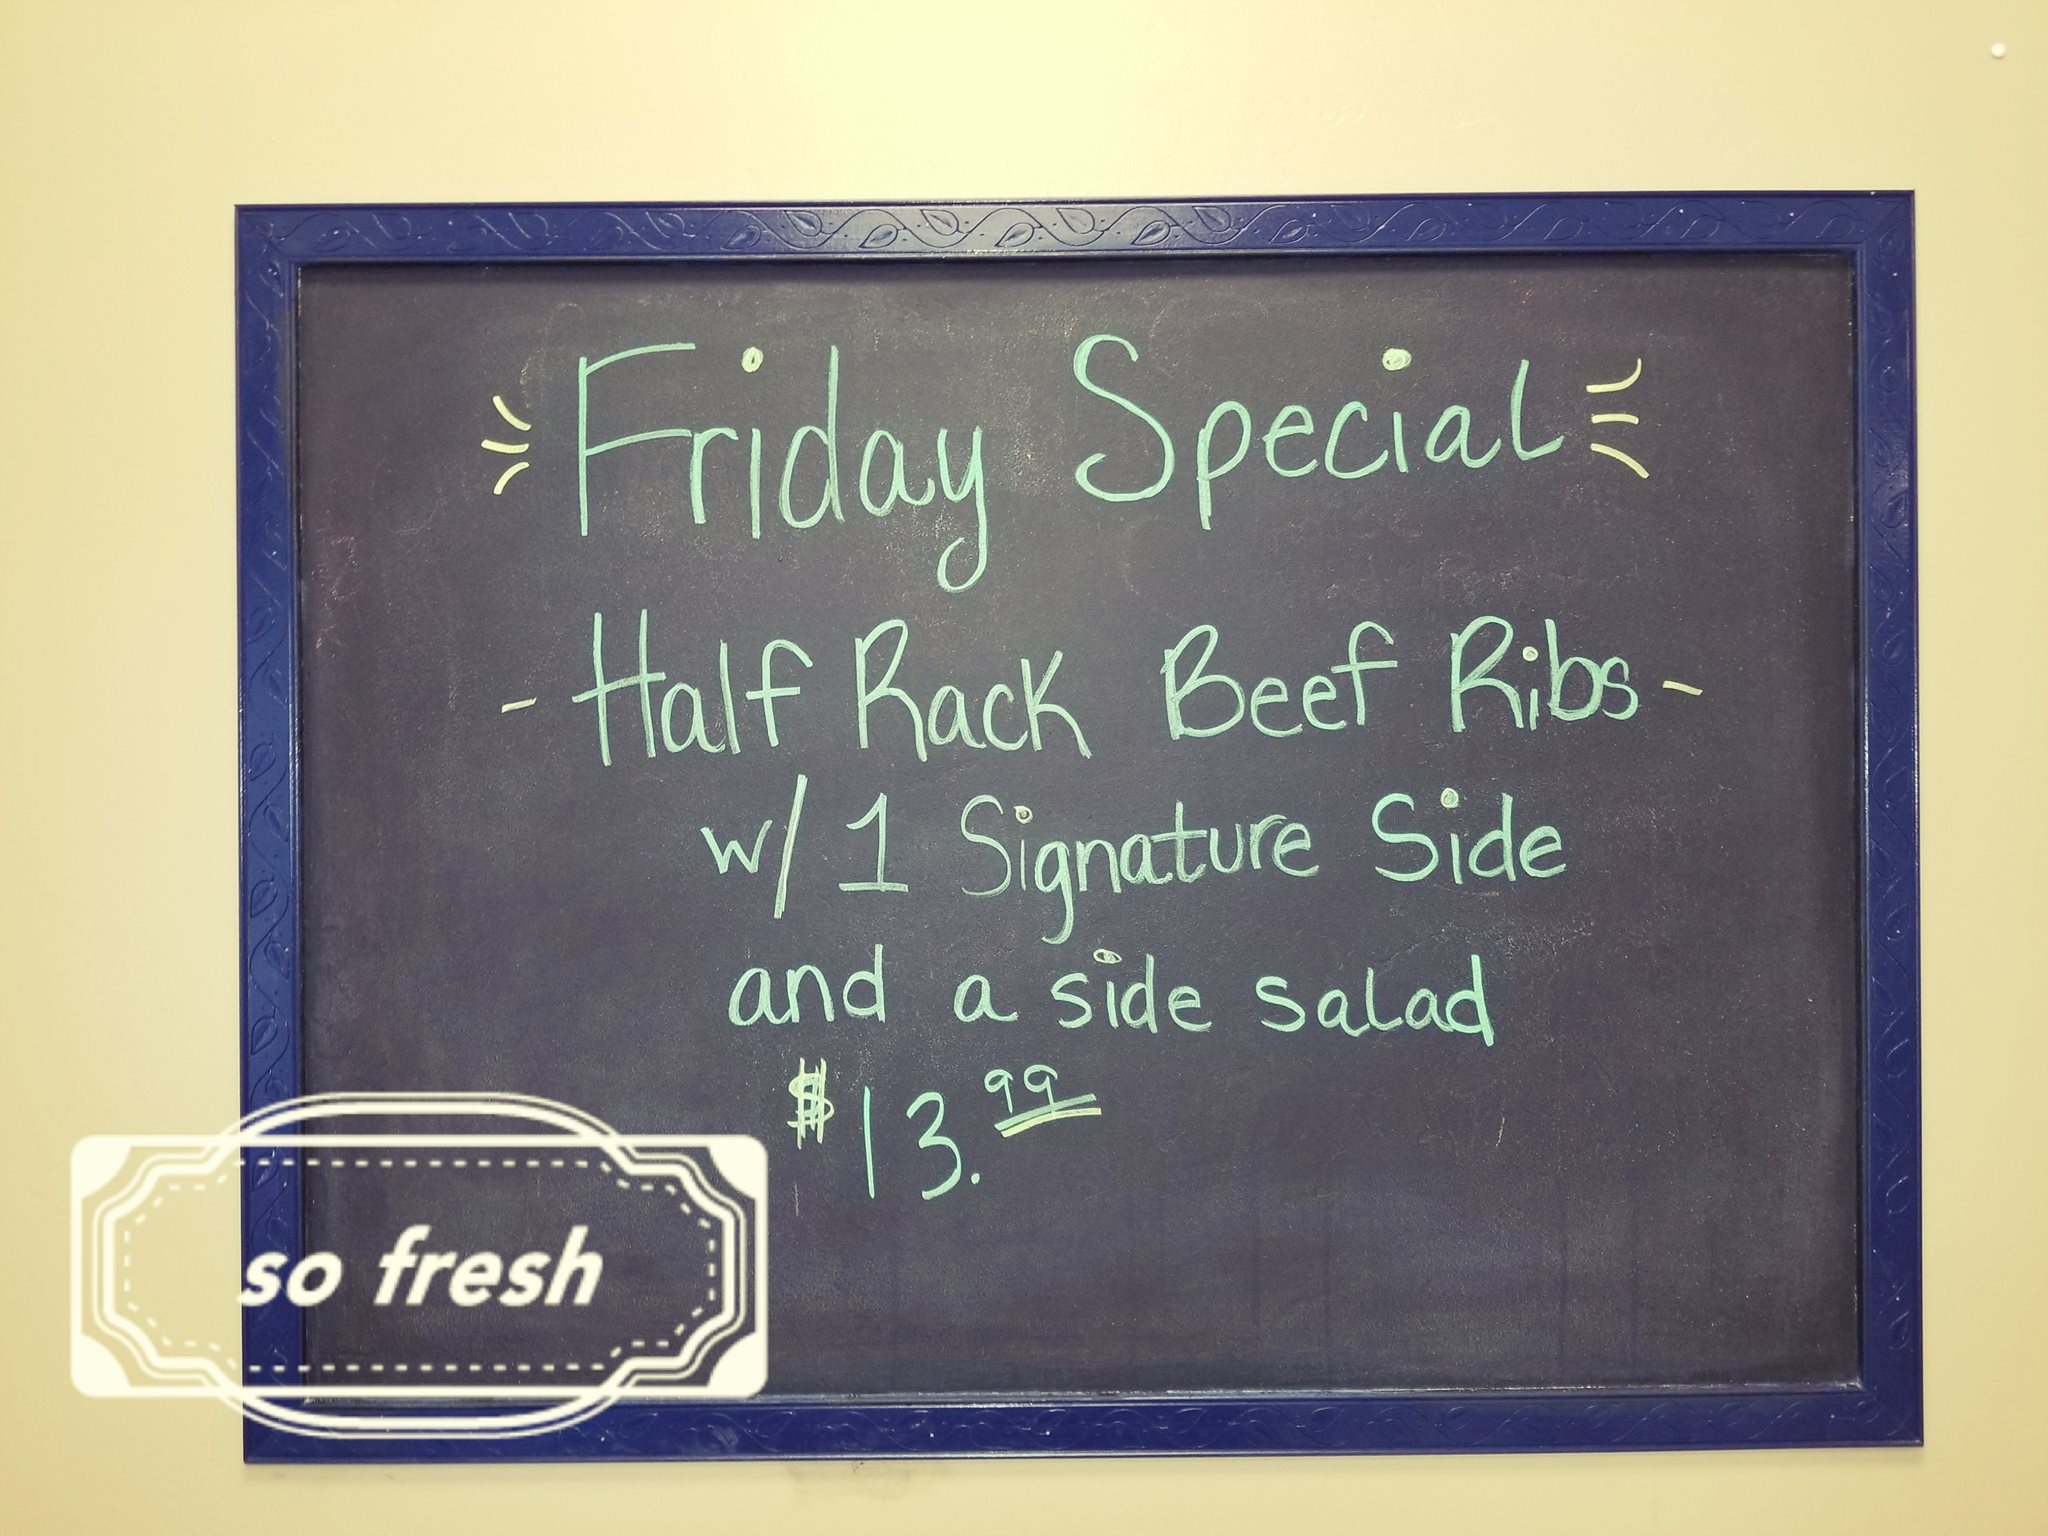 Friday Special
- Half Rack Beef Ribs -
w/ 1 Signature Side
and a side salad
$13.99
so fresh